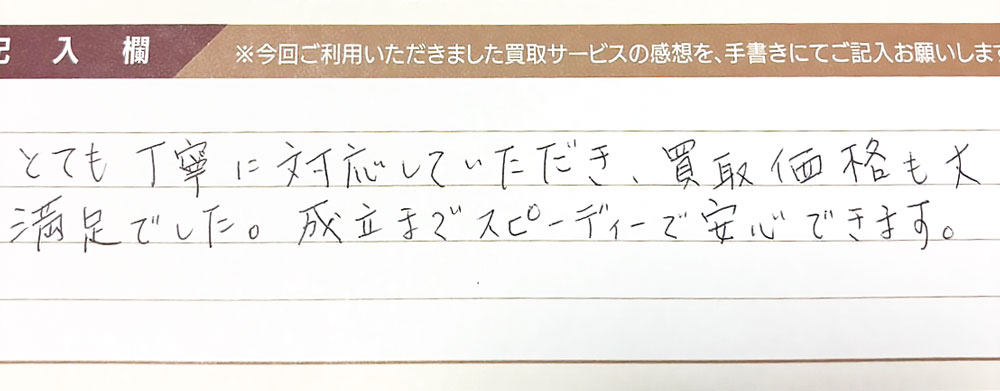 記入欄
※今回ご利用いただきました買取サービスの感想を、手書きにてご記入お願いします
とても丁寧に対応していただき、買取価格も大
満足でした。成立までスピーディーで安心できます。